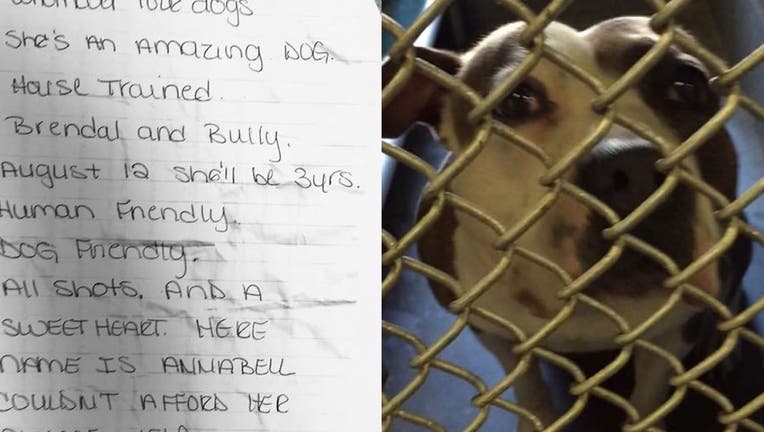 love dogs
She's An Amazing DOG.
House Trained.
Brendal and Bully.
August 12 she'll be 3yrs.
Human Friendly.
DOG Friendly.
All Shots. AND A
SWEET HEART. HERE
NAME IS ANNABELL
COULDN'T AFFORD HER